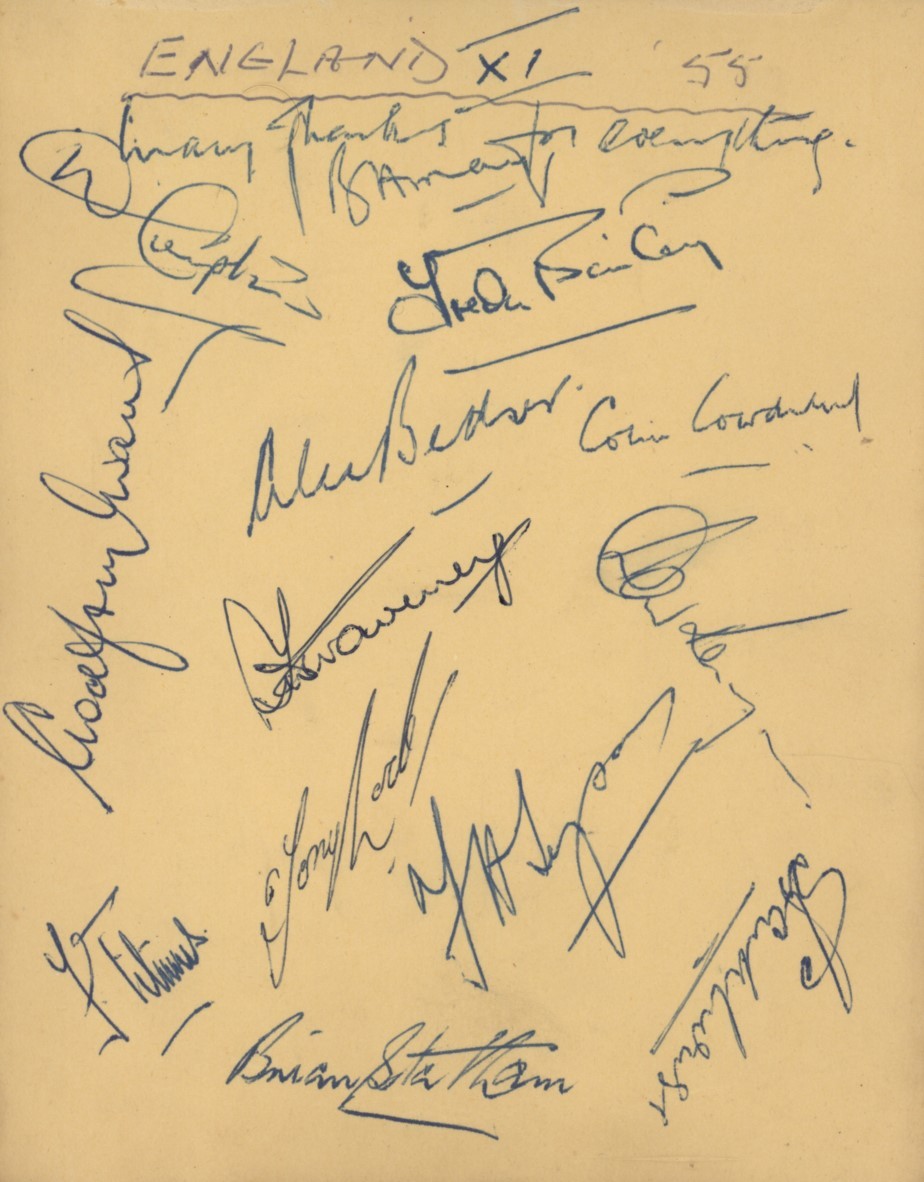 ENGLAND XI '55
Many Thanks for everything.
D. Compton
Trevor Bailey
Godfrey Evans
Alec Bedser.
Colin Cowdrey
T Graveney
Tony Lock
F. H. Tyson
F. Titmus.
Brian Statham